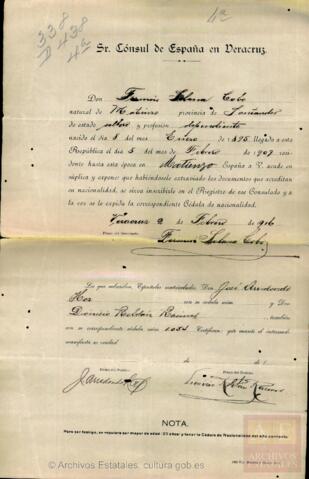 4ª
338
D 438
4ª
Sr. Cónsul de España en Veracruz.
Don Francisco Cobo
natural de provincia de Santander
de estado soltero y profesión dependiente
nacido el día 5 del mes de Enero de 1895, llegado a esta
República el día 5 del mes de Febrero de 1907 resi-
dente hasta esta época en Matienzo España a V. acude en
súplica y expone que habiéndosele extraviado los documentos que acreditan
su nacionalidad, se sirva inscribirle en el Registro de ese Consulado y a
la vez se le expida la correspondiente Cédula de nacionalidad.
Veracruz 2 de Febrero de 1916
Firma del Interesado.
Cobo
Los que subscriben, Españoles matriculados, Don José Arredondo
con su cédula núm. y Don
Dionisio Roldán Ramos también
con su correspondiente cédula núm. 1054 Certifican: que cuanto el interesado
manifiesta es verdad
de de 1
Firma del Testigo.
Firma del Testigo.
NOTA.
Para ser testigo, se requiere ser mayor de edad (23 años) y tener la Cédula de Nacionalidad del año corriente.
ARCHIVOS
ESTATALES
© Archivos Estatales. cultura.gob.es